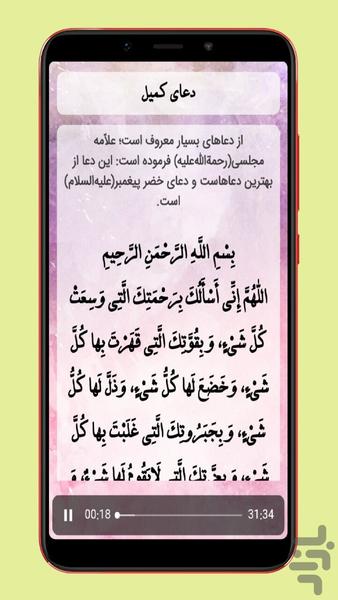 دعای کمیل
از دعاهای بسیار معروف است؛ علّامه
مجلسی(رحمةالله‌علیه) فرموده است: این دعا از
بهترین دعاهاست و دعای خضر پیغمبر(علیه‌السلام)
است.
بِسْمِ اللَّهِ الرَّحْمَنِ الرَّحِیمِ
اللَّهُمَّ إِنِّی أَسْأَلُكَ بِرَحْمَتِكَ الَّتِی وَسِعَتْ
كُلَّ شَیْ‏ءٍ، وَ بِقُوَّتِكَ الَّتِی قَهَرْتَ بِها كُلَّ
شَیْ‏ءٍ، وَ خَضَعَ لَها كُلُّ شَیْ‏ءٍ، وَ ذَلَّ لَها كُلُّ
شَیْ‏ءٍ، وَ بِجَبَرُوتِكَ الَّتِی غَلَبْتَ بِها كُلَّ
شَیْ‏ءٍ، وَ بِعِزَّتِكَ الَّتِی لَایَقُومُ لَها شَیْ‏ءٌ، وَ
00:18
31:34
بازار